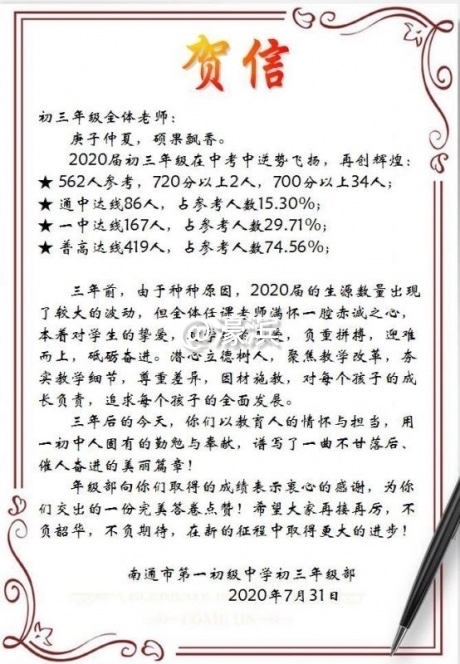 贺信
初三年级全体老师：
庚子仲夏，硕果飘香。
2020届初三年级在中考中逆势飞扬，再创辉煌：
★ 562人参考，720分以上2人，700分以上34人；
★ 通中达线86人，占参考人数15.30%；
★ 一中达线167人，占参考人数29.71%；
★ 普高达线419人，占参考人数74.56%；
三年前，由于种种原因，2020届的生源数量出现
了较大的波动，但全体任课老师满怀一腔赤诚之心，
本着对学生的挚爱，以校为家，负重拼搏，迎难
而上，砥砺奋进。潜心立德树人，聚焦教学改革，夯
实教学细节，尊重差异，因材施教，对每个孩子的成
长负责，追求每个孩子的全面发展。
三年后的今天，你们以教育人的情怀与担当，用
一初中人固有的勤勉与奉献，谱写了一曲不甘落后、
催人奋进的美丽篇章！
年级部向你们取得的成绩表示衷心的感谢，为你
们交出的一份完美答卷点赞！希望大家再接再厉，不
负韶华，不负期待，在新的征程中取得更大的进步！
南通市第一初级中学初三年级部
2020年7月31日
@濠滨